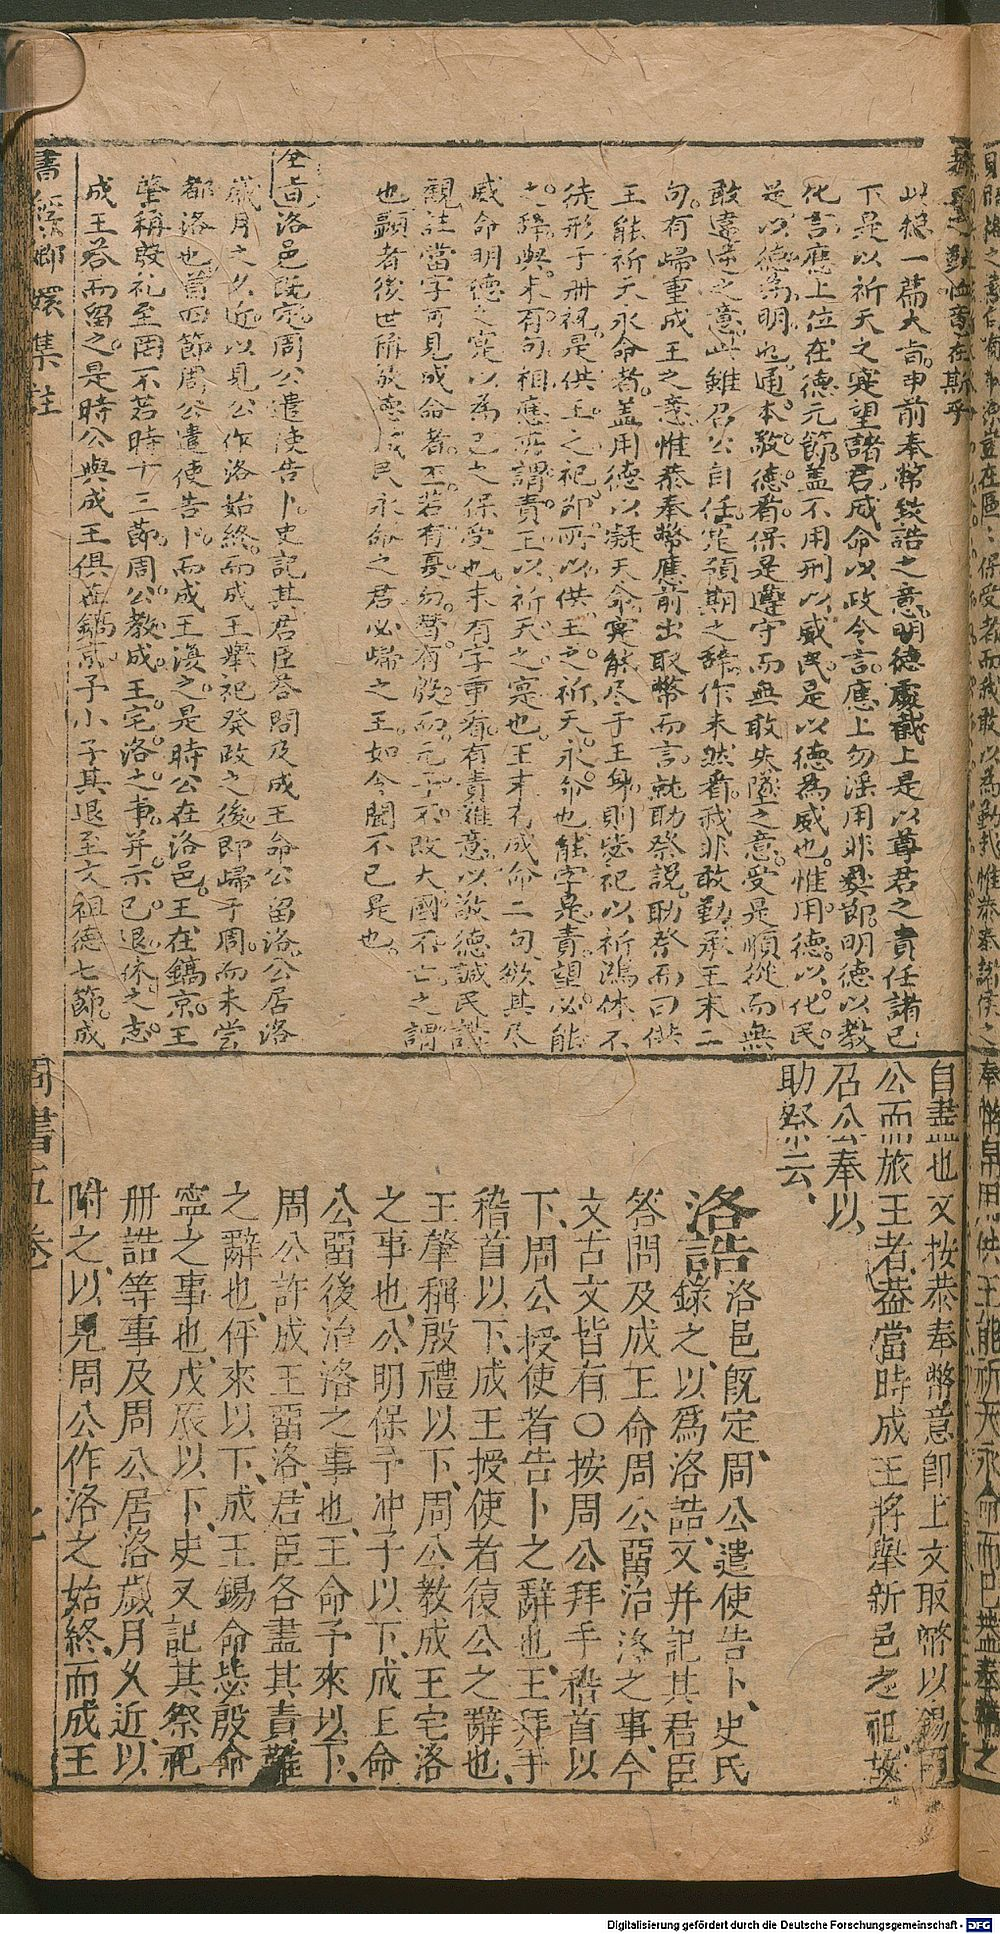 此總一篇大旨申前奉幣致誥之意明德處截上是以尊君之責任諸己
下是以祈天之寔望諸君威命以政令言應上勿淫用非彝節明德以教
化言應上位在德元節蓋不用刑以威民是以德為威也惟用德以化民
是以德為明也通本敬德看保是遵守而無敢失墜之意受是順從而無
敢違逆之意此雖召公自任寔預期之辭作未然看我非敢勤承王末二
句有歸重成王之意惟恭奉幣應前出取幣而言就助祭說助祭而曰供
王能祈天永命者蓋用德以凝天命寔能尽于王身則毖祀以祈鴻休不
徒形于冊祝是供王之祀即所以供王之祈天永命也能字是責望必能
之辞與末有句相應所謂責王以祈天之寔也王末有成命二句欲其尽
威命明德之寔以為己之保受也末有字重看有責難意以敬德諴民說
觀註當字可見成命者王若有夏勿替有殷而元子不改大國不亡之謂
也顯者後世稱敬德諴民永命之君必歸之王如令聞不已是也
全旨洛邑既定周公遣使告卜史記其君臣答問及成王命公留洛公居洛
歲月之久近以見公作洛始終而成王舉祀發政之後即歸于周而未嘗
都洛也首四節周公遣使告卜而成王復之是時公在洛邑王在鎬京王
肇稱殷礼至罔不若時十三節周公教成王宅洛之事并示己退休之志
成王答而留之是時公與成王俱在鎬京予小子其退至文祖德七節成
自盡也又按恭奉幣意即上文取幣以錫周
公而旅王者蓋當時成王將舉新邑之祀故
召公奉以
助祭云
洛誥
洛邑既定周公遣使告卜史氏
錄之以為洛誥又并記其君臣
答問及成王命周公留治洛之事今
文古文皆有○按周公拜手稽首以
下周公授使者告卜之辭也王拜手
稽首以下成王授使者復公之辭也
王肇稱殷禮以下周公教成王宅洛
之事也公明保予沖子以下成王命
公留後治洛之事也王命予來以下
周公許成王留洛君臣各盡其責難
之辭也伻來以下成王錫命毖殷命
寧之事也戊辰以下史又記其祭祀
冊誥等事及周公居洛歲月久近以
附之以見周公作洛之始終而成王
書經嫏嬛集註
周書五卷
Digitalisierung gefördert durch die Deutsche Forschungsgemeinschaft - DFG